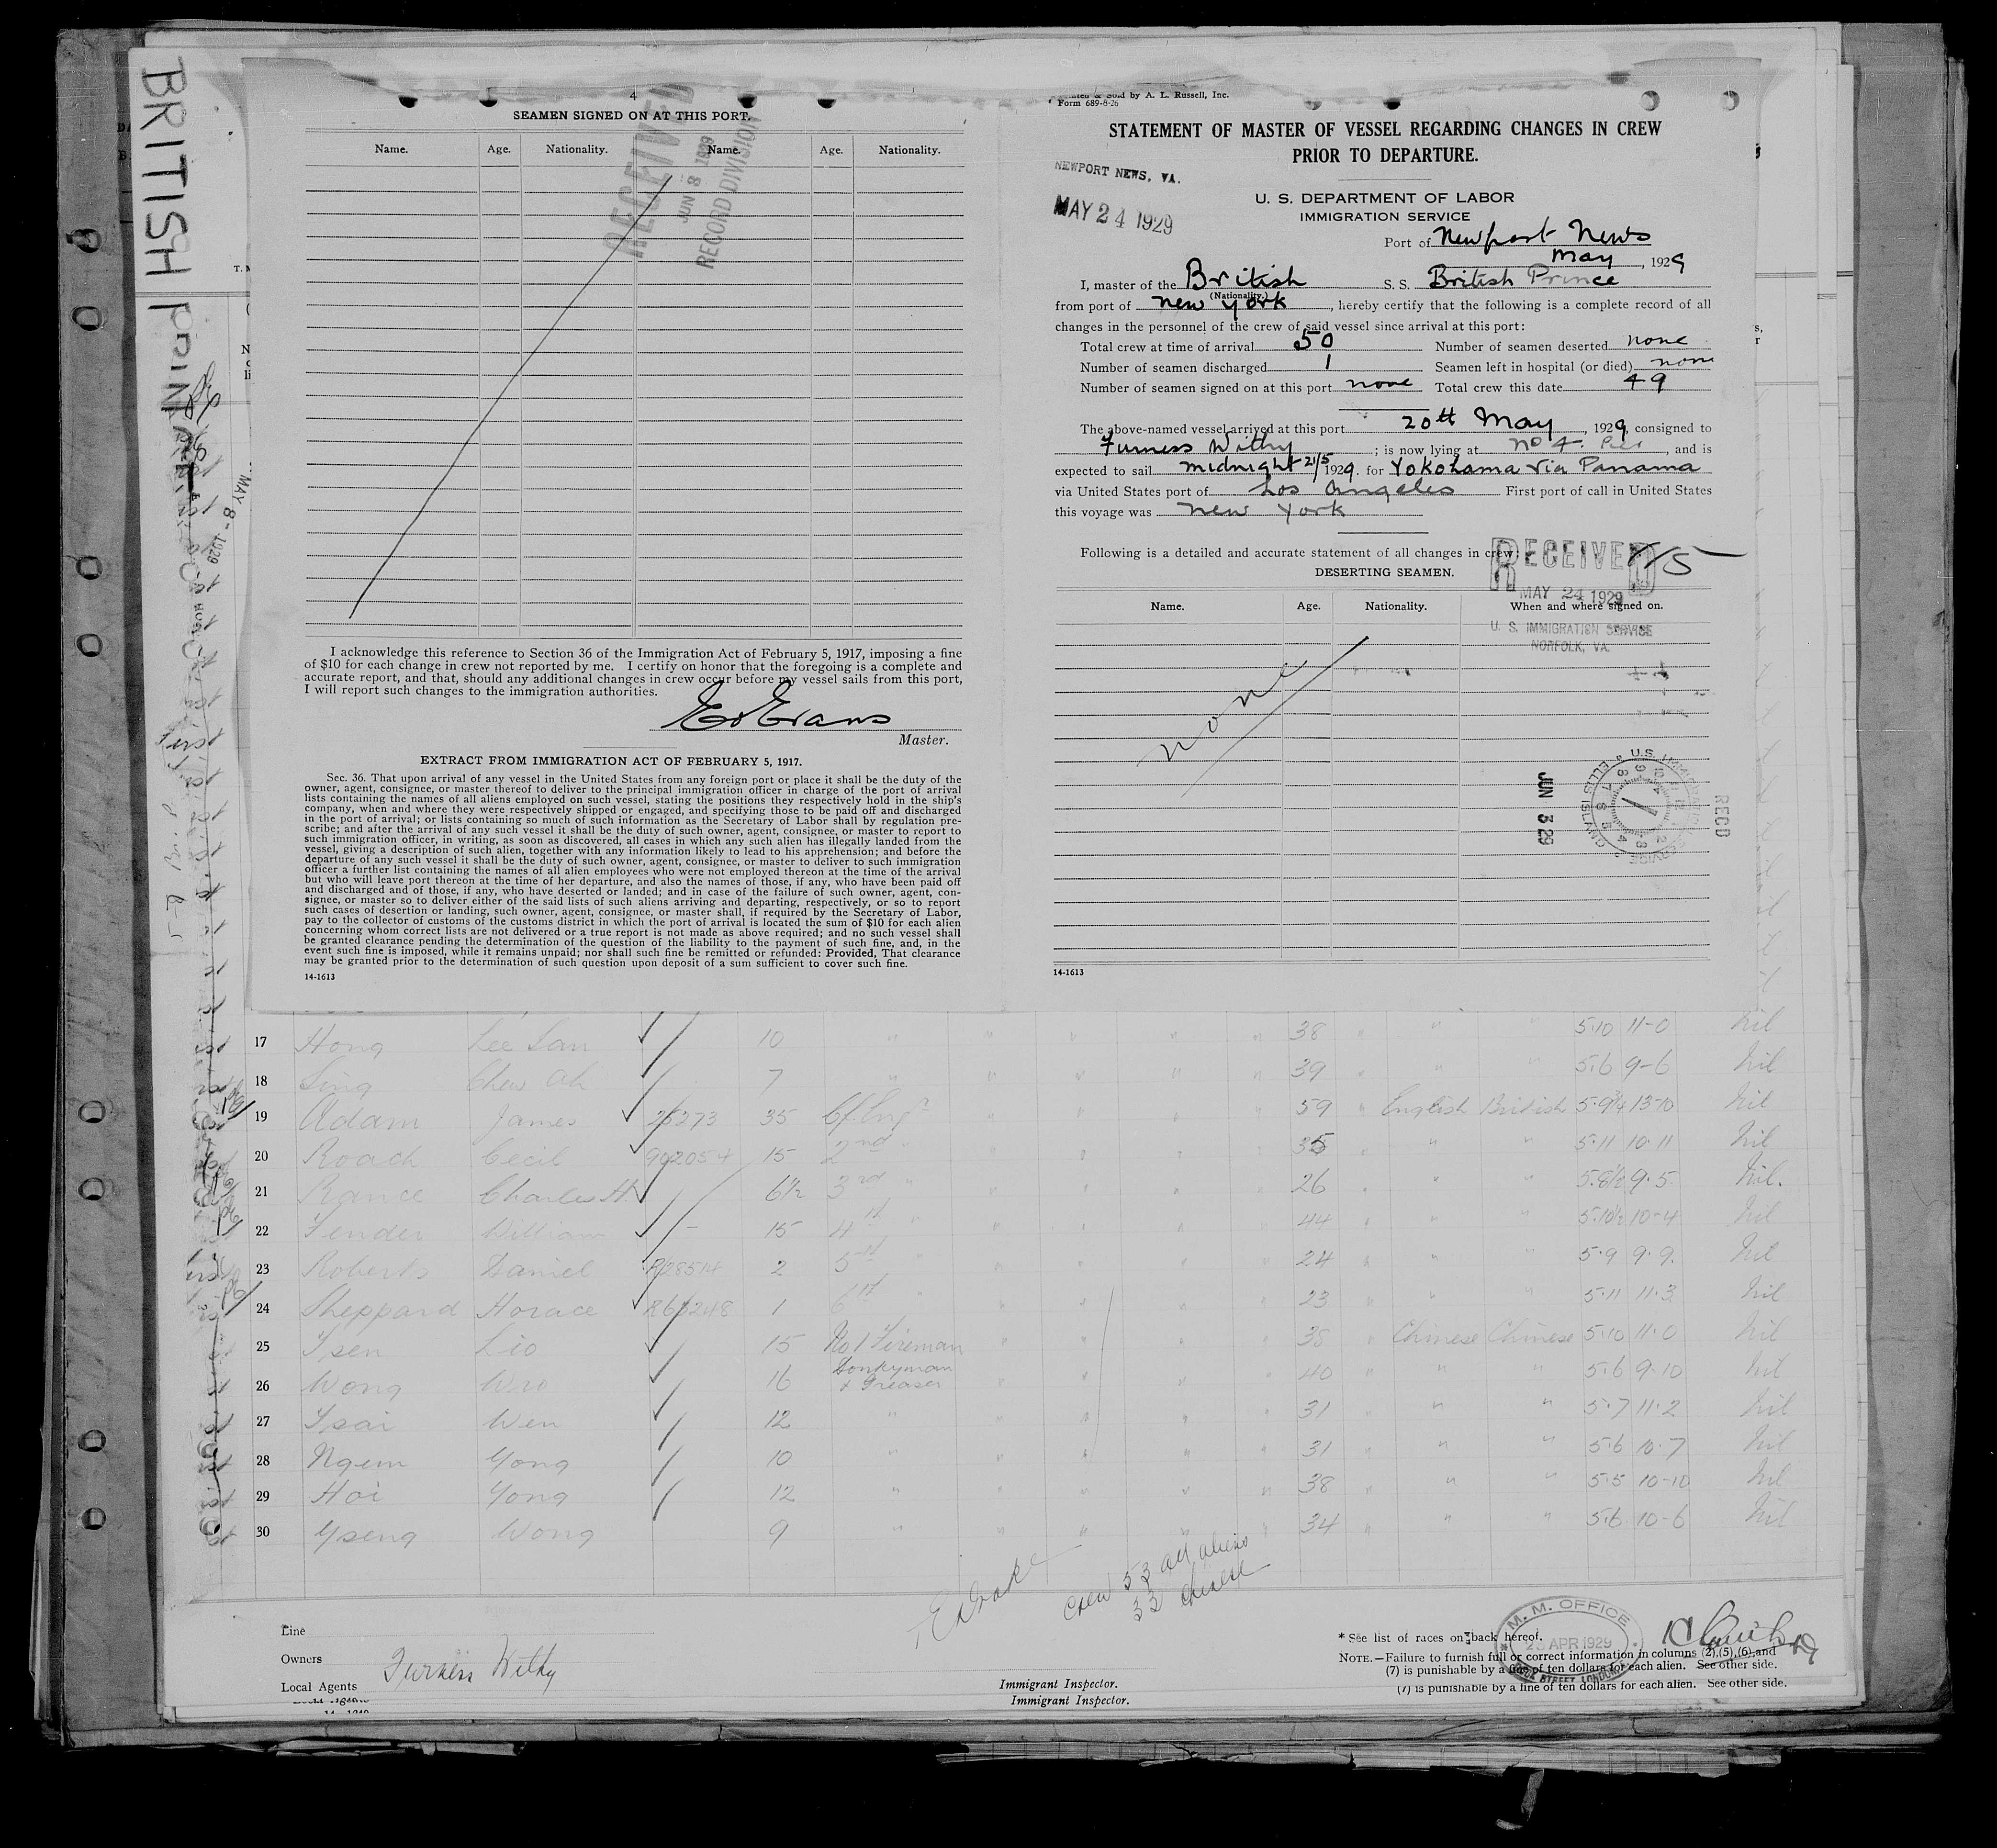 BRITISH PRINCE
4
SEAMEN SIGNED ON AT THIS PORT.
Name. Age. Nationality. Name. Age. Nationality.
RECEIVED
JUN 8 1929
RECORD DIVISION
I acknowledge this reference to Section 36 of the Immigration Act of February 5, 1917, imposing a fine
of $10 for each change in crew not reported by me. I certify on honor that the foregoing is a complete and
accurate report, and that, should any additional changes in crew occur before my vessel sails from this port,
I will report such changes to the immigration authorities.
Evans
Master.
EXTRACT FROM IMMIGRATION ACT OF FEBRUARY 5, 1917.
Sec. 36. That upon arrival of any vessel in the United States from any foreign port or place it shall be the duty of the
owner, agent, consignee, or master thereof to deliver to the principal immigration officer in charge of the port of arrival
lists containing the names of all aliens employed on such vessel, stating the positions they respectively hold in the ship's
company, when and where they were respectively shipped or engaged, and specifying those to be paid off and discharged
in the port of arrival; or lists containing so much of such information as the Secretary of Labor shall by regulation pre-
scribe; and after the arrival of any such vessel it shall be the duty of such owner, agent, consignee, or master to report to
such immigration officer, in writing, as soon as discovered, all cases in which any such alien has illegally landed from the
vessel, giving a description of such alien, together with any information likely to lead to his apprehension; and before the
departure of any such vessel it shall be the duty of such owner, agent, consignee, or master to deliver to such immigration
officer a further list containing the names of all alien employees who were not employed thereon at the time of the arrival
but who will leave port thereon at the time of her departure, and also the names of those, if any, who have been paid off
and discharged and of those, if any, who have deserted or landed; and in case of the failure of such owner, agent, con-
signee, or master so to deliver either of the said lists of such aliens arriving and departing, respectively, or so to report
such cases of desertion or landing, such owner, agent, consignee, or master shall, if required by the Secretary of Labor,
pay to the collector of customs of the customs district in which the port of arrival is located the sum of $10 for each alien
concerning whom correct lists are not delivered or a true report is not made as above required; and no such vessel shall
be granted clearance pending the determination of the question of the liability to the payment of such fine, and, in the
event such fine is imposed, while it remains unpaid; nor shall such fine be remitted or refunded: Provided, That clearance
may be granted prior to the determination of such question upon deposit of a sum sufficient to cover such fine.
14-1613
Sold by A. L. Russell, Inc.
Form 689-8-26
STATEMENT OF MASTER OF VESSEL REGARDING CHANGES IN CREW
PRIOR TO DEPARTURE.
NEWPORT NEWS, VA.
MAY 24 1929
U. S. DEPARTMENT OF LABOR
IMMIGRATION SERVICE
Port of Newport News
May, 1929
I, master of the British S. S. British Prince
(Nationality.)
from port of New York, hereby certify that the following is a complete record of all
changes in the personnel of the crew of said vessel since arrival at this port:
Total crew at time of arrival 50 Number of seamen deserted none
Number of seamen discharged 1 Seamen left in hospital (or died) none
Number of seamen signed on at this port none Total crew this date 49
The above-named vessel arrived at this port 20th May, 1929, consigned to
Furness Withy; is now lying at No 4 Pier, and is
expected to sail midnight 21/5 1929, for Yokohama via Panama
via United States port of Los Angeles First port of call in United States
this voyage was New York
Following is a detailed and accurate statement of all changes in crew:
DESERTING SEAMEN.
RECEIVED
MAY 24 1929
U. S. IMMIGRATION SERVICE
NORFOLK, VA.
Name. Age. Nationality. When and where signed on.
none
JUN 3 29
RECD
14-1613
MAY 8-1929
17 Hong Lee San 10 " " " " " 38 " " " 5·10 11-0 Nil
18 Sing Chew Ah 7 " " " " " 39 " " " 5·6 9-6 Nil
19 Adam James 26273 35 Cf. Engr " " " " 59 " English British 5·9¾ 13-10 Nil
20 Roach Cecil 902054 15 2nd " " " " " 35 " " " 5·11 10·11 Nil
21 Rance Charles H. 6½ 3rd " " " " " 26 " " " 5·8½ 9·5 Nil.
22 Fender William - 15 4th " " " " " 44 " " " 5·10½ 10-4 Nil
23 Roberts Daniel 2 5th " " " " " 24 " " " 5·9 9·9. Nil
24 Sheppard Horace 1 6th " " " " " 23 " " " 5·11 11·3 Nil
25 Tsen Lio 15 No 1 Fireman " " " " 38 " Chinese Chinese 5·10 11·0 Nil
26 Wong Woo 16 Donkyman & Greaser " " " " 40 " " " 5·6 9·10 Nil
27 Tsai Wen 12 " " " " " 31 " " " 5·7 11·2 Nil
28 Ngem Yong 10 " " " " " 31 " " " 5·6 10·7 Nil
29 Hoi Yong 12 " " " " " 38 " " " 5·5 10-10 Nil
30 Yseng Wong 9 " " " " " 34 " " " 5·6 10-6 Nil
Crew 53 all aliens
33 Chinese
Line
Owners
Furness Withy
Local Agents
Immigrant Inspector.
Immigrant Inspector.
M. M. OFFICE
25 APR 1929
DOCK STREET LONDON E.
* See list of races on back hereof.
NOTE.—Failure to furnish full or correct information in columns (2), (5), (6), and
(7) is punishable by a fine of ten dollars for each alien. See other side.
(7) is punishable by a fine of ten dollars for each alien. See other side.